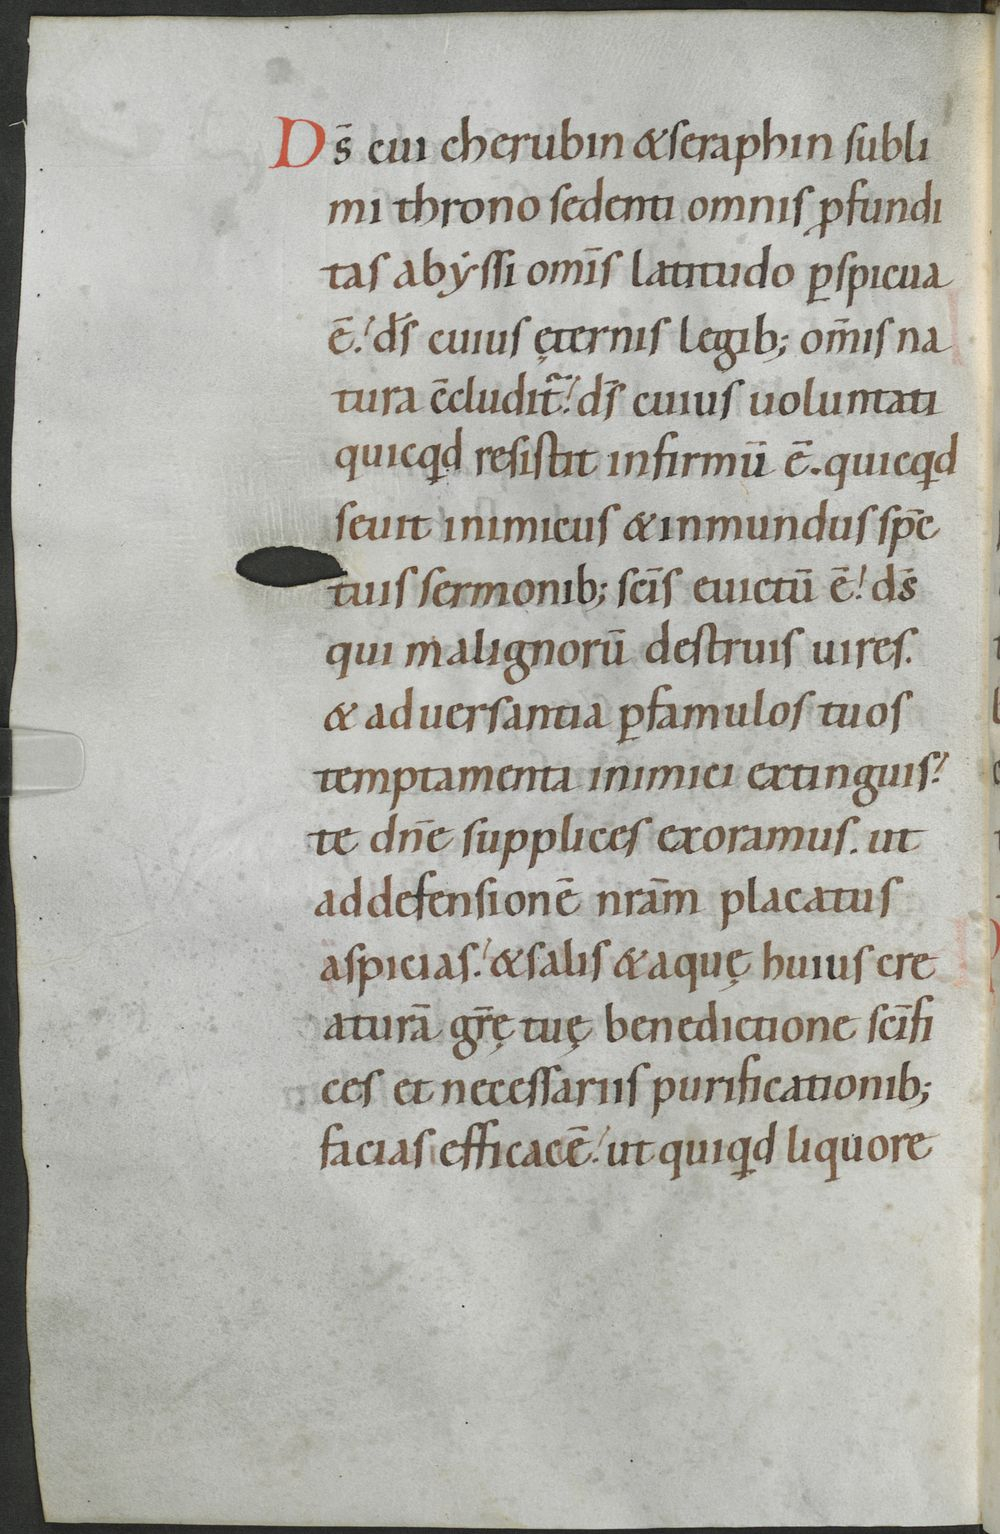 Ds̄ cui cherubin & seraphin subli
mi throno sedenti omnis ꝓfundi
tas abẏssi om̄is latitudo ꝑspicua
ē. ds̄ cuius ęternis legib; om̄is na
tura c̄cludit̃. ds̄ cuius uoluntati
quicqd resistit infirmū ē. quicqd
seuit inimicus & inmundus sp̄c
tuis sermonib; sc̄is euictū ē. ds̄
qui malignorū destruis uires.
& aduersantia ꝑ famulos tuos
temptamenta inimici extinguis.
te dn̄e supplices exoramus. ut
ad defensionē nrām placatus
aspicias. & salis & aquę huius cre
aturā gr̄ę tuę benedictione sc̄ifi
ces et necessariis purificationib;
facias efficacē. ut quiqd liquore